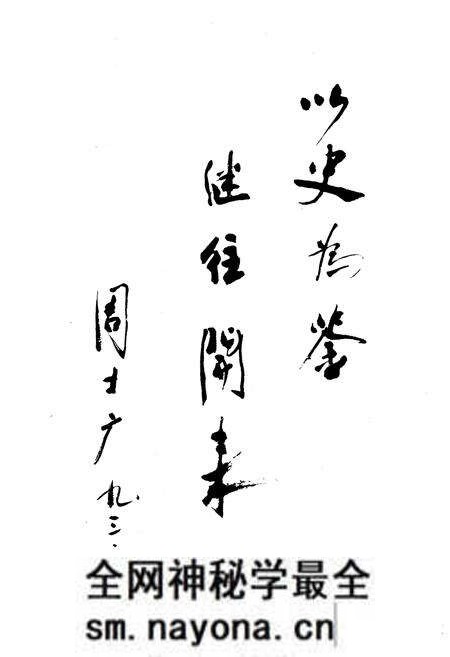 以史为鉴
继往開来
周士广 九三.
全网神秘学最全
sm.nayona.cn